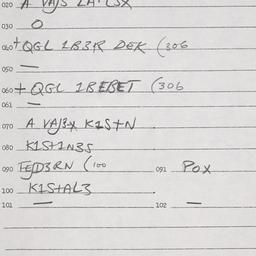 020 A VAJS
030 O
040 + QGL 1B3R DEK (306
050 —
060 + QGL 1BEBET (306
061 —
070 A VAJ3-X K1S+N
080 K1S+1N3S
090 FEJD3RN (100 091 POX
100 K1S+AL3
101 — 102 —